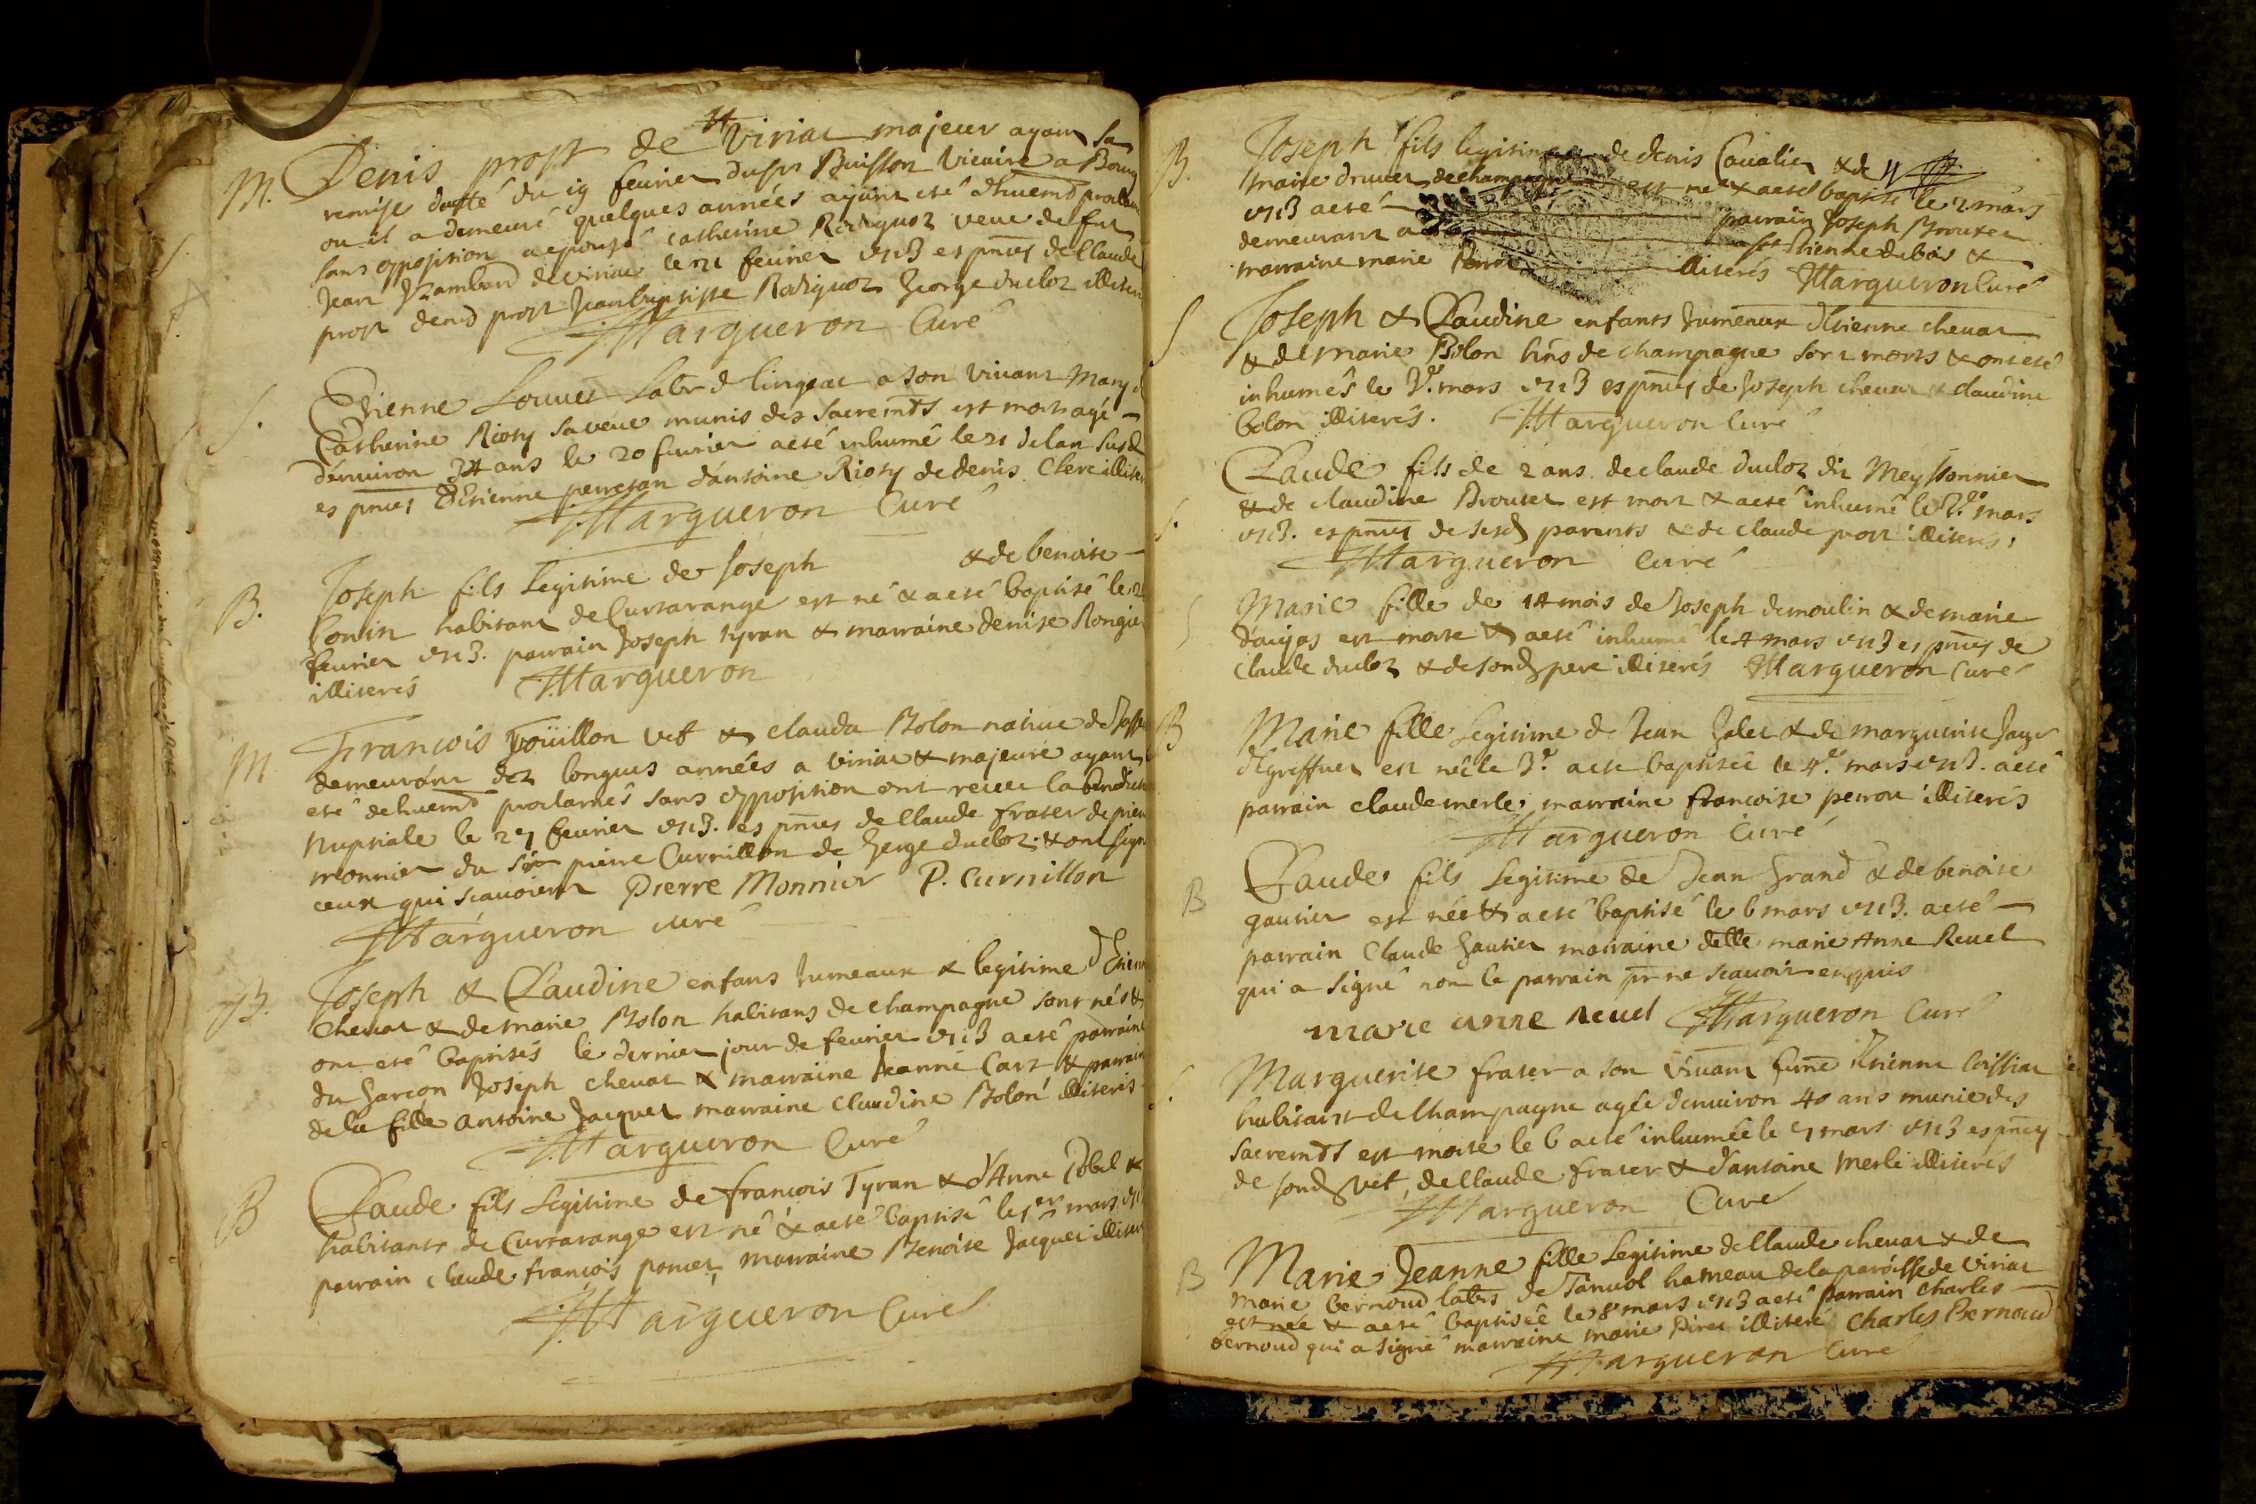 M. Denis prost de Viriat majeur ayant sa
remise dattée du 19 fevrier du sr Buisson Vicaire a Bourg
ou il a demeuré quelques années ayant eté dhuemt proclamé
sans opposition a epousé Catherine Rodiguoz veue de fut
Jean Jambard de viriat le 21 fevrier 1713 es pnces de Claude
prost denis prost Jeanbaptiste Rodiguoz George ducloz illiterés
Margueron Curé
S. Etienne Louuet Labr d lingeat a son vivant Mary d
Catherine Riony sa veue munis des sacremts est mort agé
d'enuiron 34 ans le 20 fevrier a eté inhumé le 21 de lan susd
es pnces d'Etienne perretan d'antoine Riony de denis Clerc illiterés
Margueron Curé
B. Joseph fils Legitime de Joseph & de benoite
Contin habitant de Curtarange est né & a eté baptisé le 2
fevrier 1713. parrain Joseph tyran & marraine denise Rongier
illiterés Margueron
M François Poüillon vet & clauda Bolon native de Jass
demeurant dez longues années a viriat & majeure ayant
eté dehuemt proclamés sans opposition ont receu la benediction
Nuptiale le 27 fevrier 1713. es pnces de Claude frater de pierre
monnier du sr pierre Curnillon de George ducloz & ont signé
ceux qui scauoient Pierre Monnier P. Curnillon
Margueron curé
B. Joseph & Claudine enfans Jumeaux & legitime d'Etienne
Chevat & de marie Bolon habitans de champagne sont nés &
ont eté baptisés le dernier jour de fevrier 1713 a eté parrain
du Garcon Joseph chevat & marraine Jeanne Cart & parrain
de la fille antoine Jacquet marraine Claudine Bolon illiterés
Margueron Curé
B Claude fils Legitime de françois Tyran & d'Anne Pobel &
habitants de Curtarange est né & a eté baptisé le 1er mars 171
parrain claude françois poncet marraine Benoite Jacquet illiterés
Margueron Curé
B. Joseph fils legitime de denis Cavalier & de
marie druet de champagne est né & a eté baptisé le 2 mars
1713 a eté parrain Joseph Brouter
demeurant a Etienne debos &
marraine marie illiterés Margueron Curé
S Joseph & Claudine enfants Jumeaux d'Etienne chevat
& de marie Bolon hns de champagne sont morts & ont eté
inhumés le 3e mars 1713 es pnces de Joseph chevat & claudine
bolon illiterés. Margueron Curé
S. Claude fils de 2 ans de claude ducloz dit Meyssonnier
& de claudine Brouter est mort & a eté inhumé le 3e mars
1713. es pnces de sesd parents & de claude prost illiterés,
Margueron Curé
S Marie fille de 14 mois de Joseph demoulin & de marie
daujas est morte & a eté inhumé le 4 mars 1713 es pnces de
Claude ducloz & de sond pere illiterés Margueron Curé
B Marie fille Legitime de Jean Jalet & de marguerite Jayr
d'greffiet est née le 3e a eté baptisée le 4e mars 1713. a eté
parrain claude merle marraine françoise perrou illiterés
Margueron Curé
B Claude fils Legitime de Jean Grand & de benoite
gautier est née & a eté baptisé le 6 mars 1713. a eté
parrain Claude Gautier marraine delle marie Anne Revel
qui a signé non le parrain pr ne scauoir enquis
marie anne revel Margueron Curé
S. Marguerite frater a son vivant feme Etienne Coissiat
habitant de Champagne agée denuiron 40 ans munie des
sacremts est morte le 6 a eté inhumée le 7 mars 1713 es pnces
de sond vet, de Claude frater & d'antoine Merle illiterés
Margueron Curé
B Marie Jeanne fille Legitime de Claude chevat & de
marie bernoud labrs de Tanuol hameau de la paroisse de Viriat
est née & a eté baptisée le 8e mars 1713 a eté parrain Charles
bernoud qui a signé marraine marie Piret illiteré Charles Bernoud
Margueron Curé